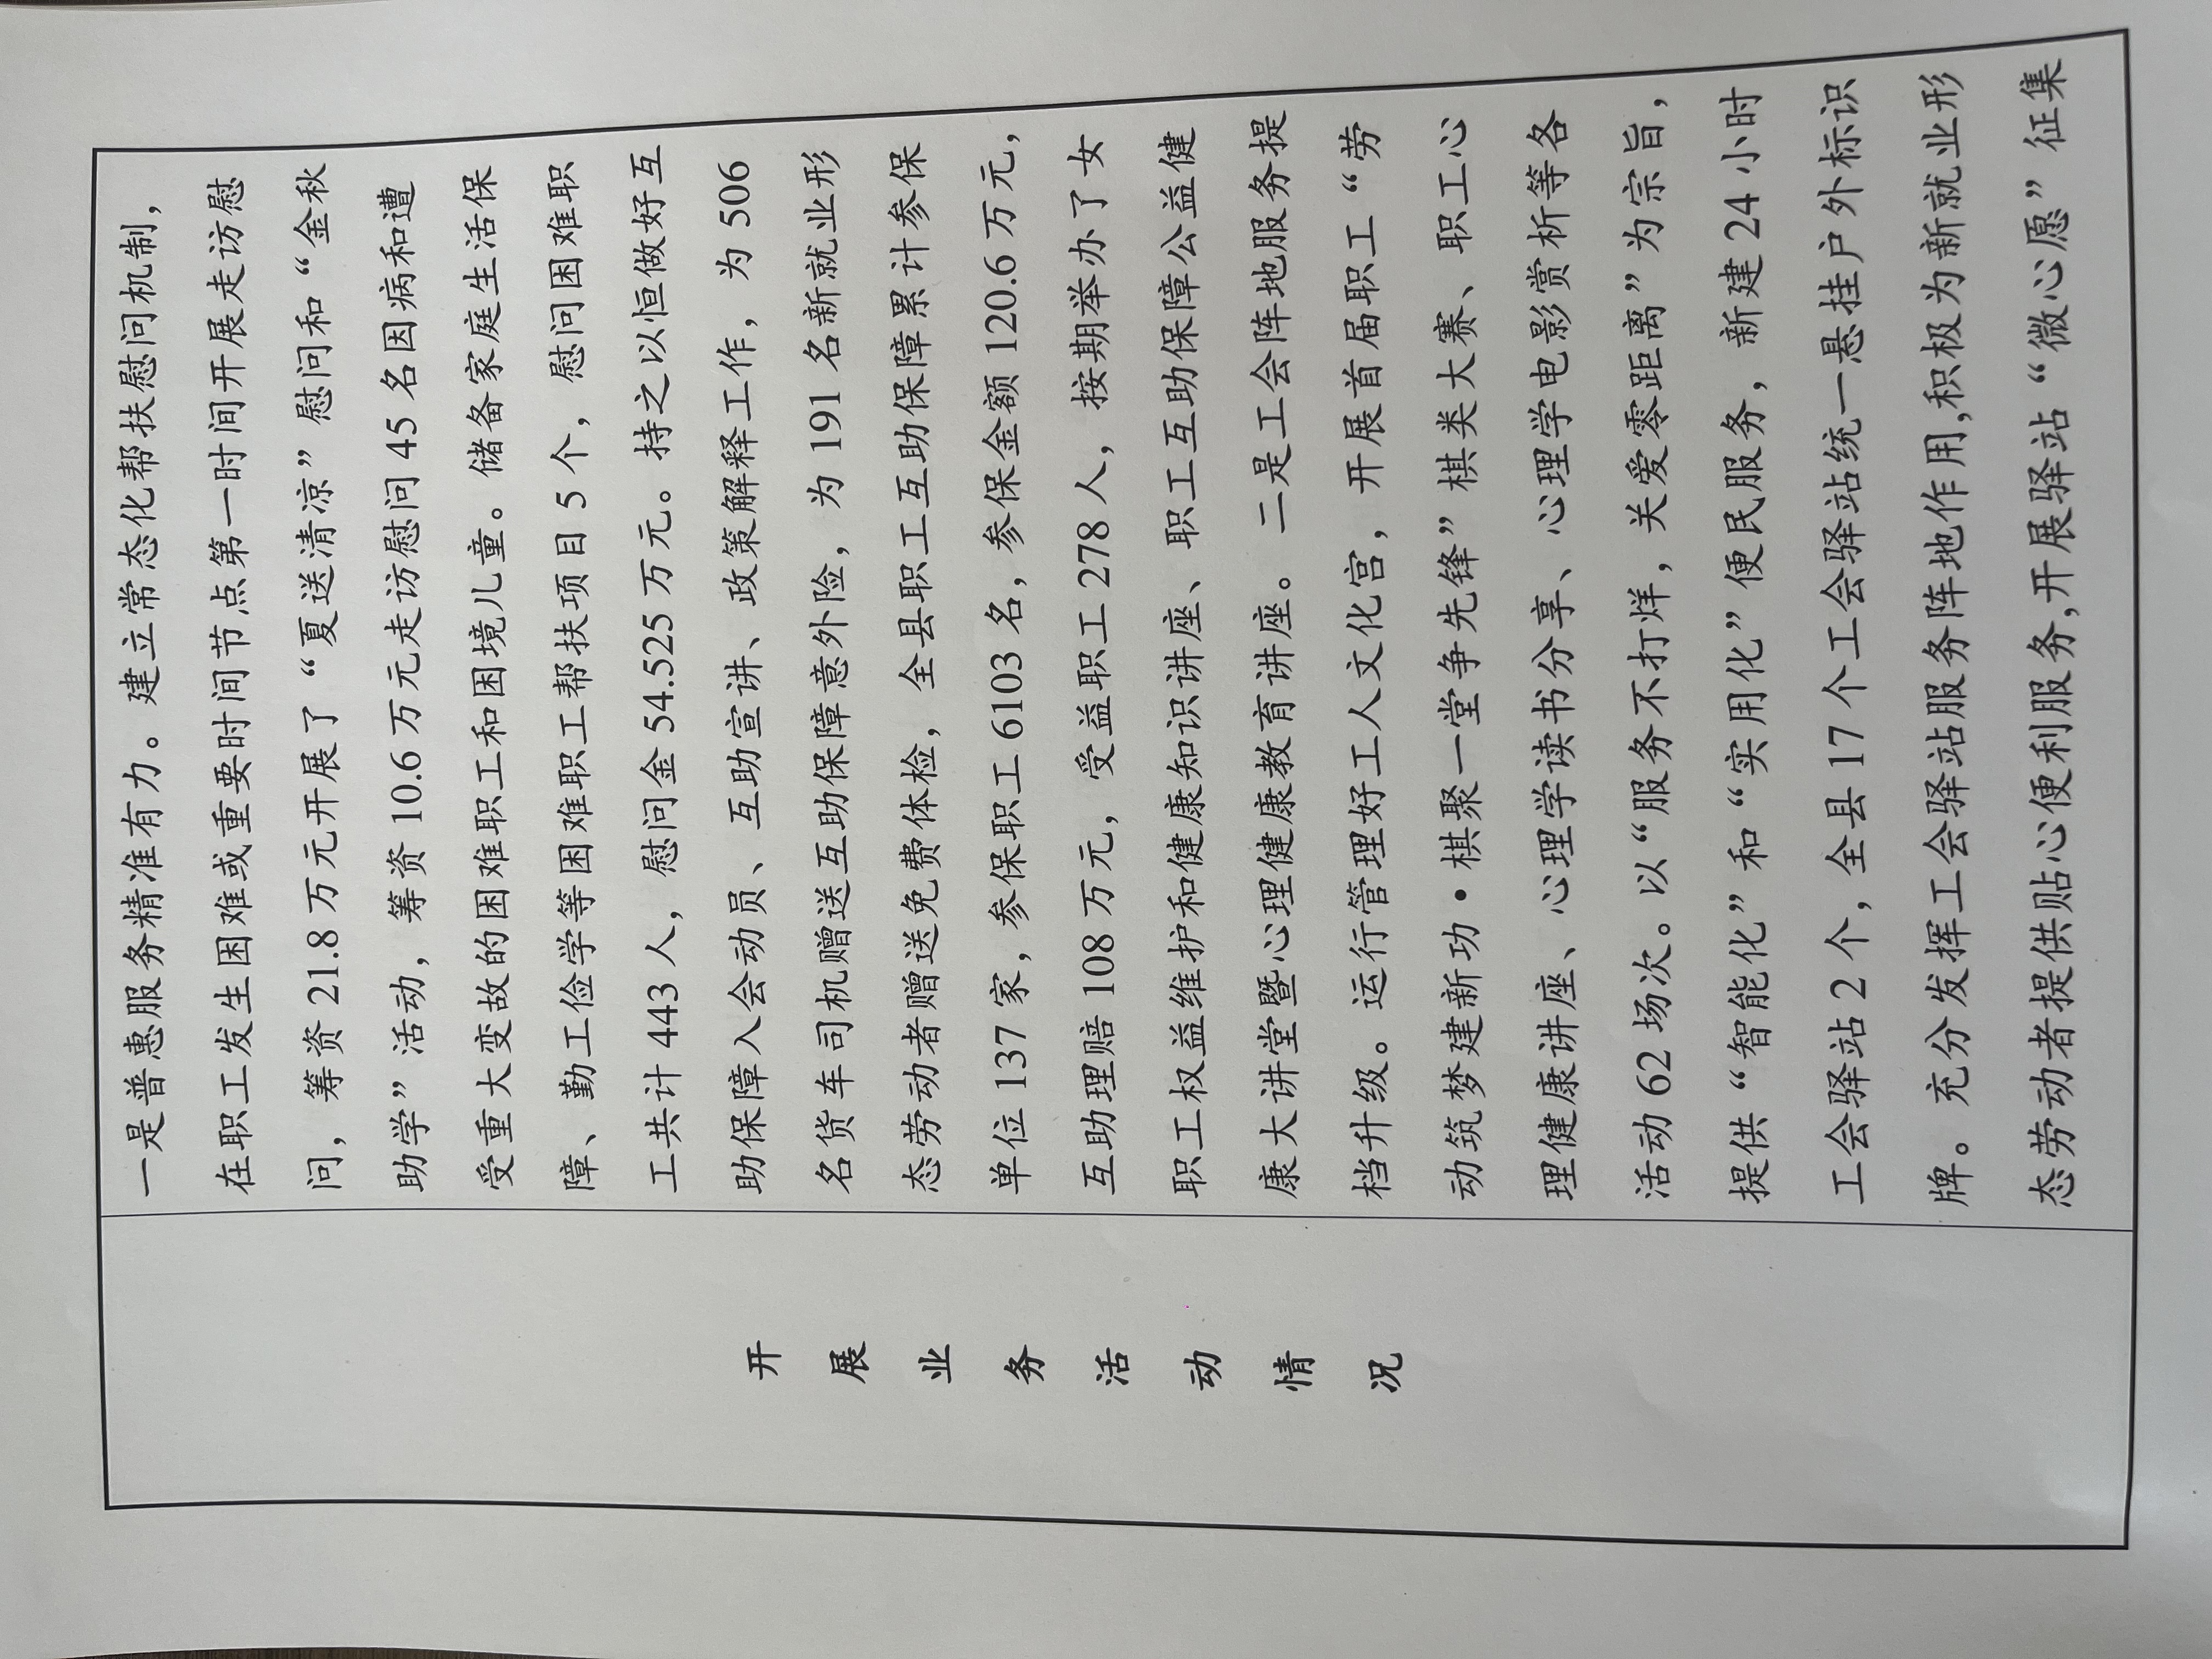 开展业务活动情况
一是普惠服务精准有力。建立常态化帮扶慰问机制，
在职工发生困难或重要时间节点第一时间开展走访慰
问，筹资 21.8 万元开展了“夏送清凉”慰问和“金秋
助学”活动，筹资 10.6 万元走访慰问 45 名因病和遭
受重大变故的困难职工和困境儿童。储备家庭生活保
障、勤工俭学等困难职工帮扶项目 5 个，慰问困难职
工共计 443 人，慰问金 54.525 万元。持之以恒做好互
助保障入会动员、互助宣讲、政策解释工作，为 506
名货车司机赠送互助保障意外险，为 191 名新就业形
态劳动者赠送免费体检，全县职工互助保障累计参保
单位 137 家，参保职工 6103 名，参保金额 120.6 万元，
互助理赔 108 万元，受益职工 278 人，按期举办了女
职工权益维护和健康知识讲座、职工互助保障公益健
康大讲堂暨心理健康教育讲座。二是工会阵地服务提
档升级。运行管理好工人文化宫，开展首届职工“劳
动筑梦建新功•棋聚一堂争先锋”棋类大赛、职工心
理健康讲座、心理学读书分享、心理学电影赏析等各
活动 62 场次。以“服务不打烊，关爱零距离”为宗旨，
提供“智能化”和“实用化”便民服务，新建 24 小时
工会驿站 2 个，全县 17 个工会驿站统一悬挂户外标识
牌。充分发挥工会驿站服务阵地作用,积极为新就业形
态劳动者提供贴心便利服务,开展驿站“微心愿”征集